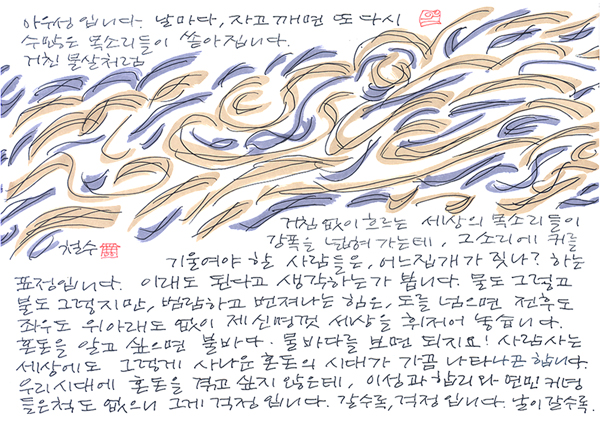 아우성입니다. 날마다, 자고 깨면 또 다시
수많은 목소리들이 쏟아집니다.
거친 물살처럼
거침 없이 흐르는 세상의 목소리들이
강폭을 넓혀 가는데, 그 소리에 귀를
철수
기울여야 할 사람들은, 어느집 개가 짖나? 하는
표정입니다. 이래도 된다고 생각하는가 봅니다. 물도 그렇고
불도 그렇지만, 범람하고 번져나는 힘은, 도를 넘으면 전후도
좌우도 위아래도 없이 제 신명껏 세상을 휘저어 놓습니다.
혼돈을 알고 싶으면 불바다·물바다를 보면 되지요! 사람사는
세상에도 그렇게 사나운 혼돈의 시대가 가끔 나타나곤 합니다.
우리시대에 혼돈을 겪고 싶지 않은데, 이성과 합리와 연민 커녕
들은척도 없으니 그게 걱정입니다. 갈수록, 걱정입니다. 날이 갈수록.